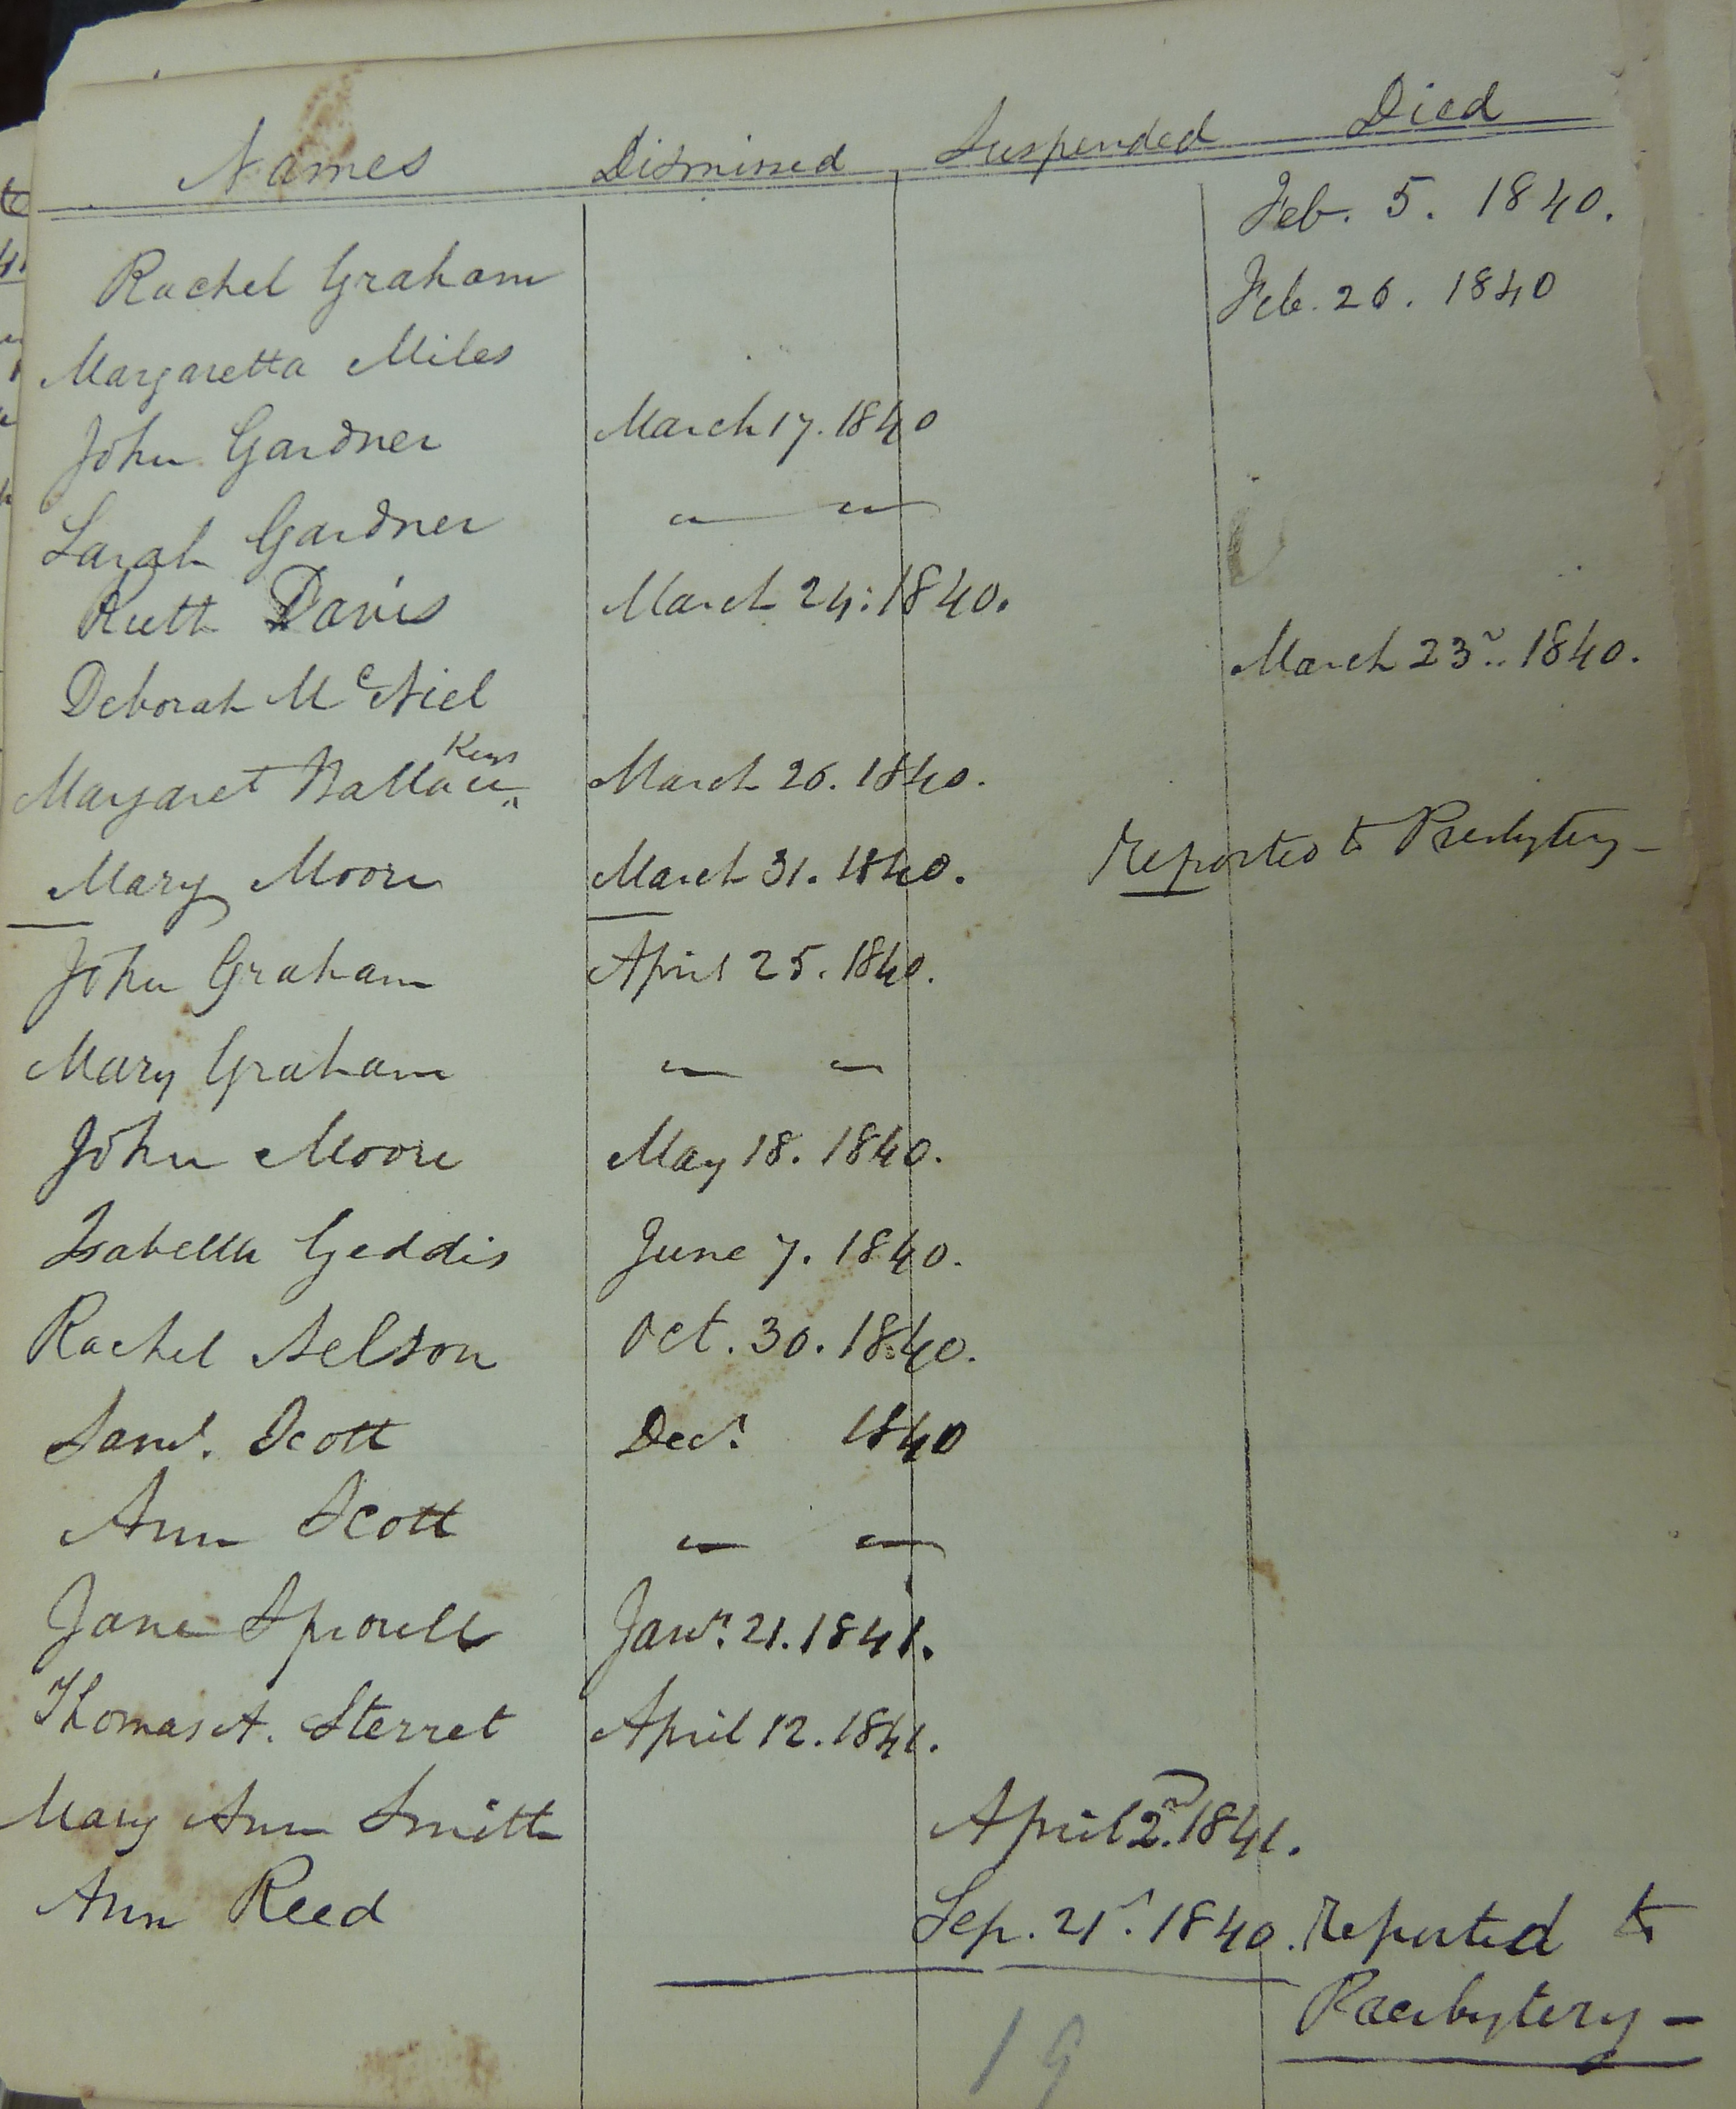 Names Dismissed Suspended Died
Rachel Graham Feb. 5. 1840.
Margaretta Miles Feb. 26. 1840
John Gardner March 17. 1840
Sarah Gardner " "
Ruth Davis March 24. 1840.
Deborah McNiel March 23d. 1840.
Margaret Wallace March 26. 1840.
Mary Moore March 31. 1840. Reported to Presbytery -
John Graham April 25. 1840.
Mary Graham " "
John Moore May 18. 1840.
Isabella Geddis June 7. 1840.
Rachel Nelson Oct. 30. 1840.
Saml. Scott Decr. 1840
Ann Scott " "
Jane Sproull Janr. 21. 1841.
Thomas A. Sterret April 12. 1841.
Mary Ann Smith April 2d. 1841.
Ann Reed Sep. 21st. 1840. Reported to
Presbytery -
19